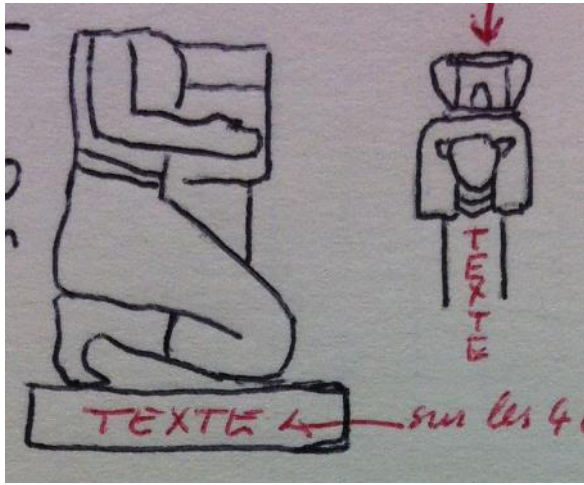 TEXTE
TEXTE
sur les 4